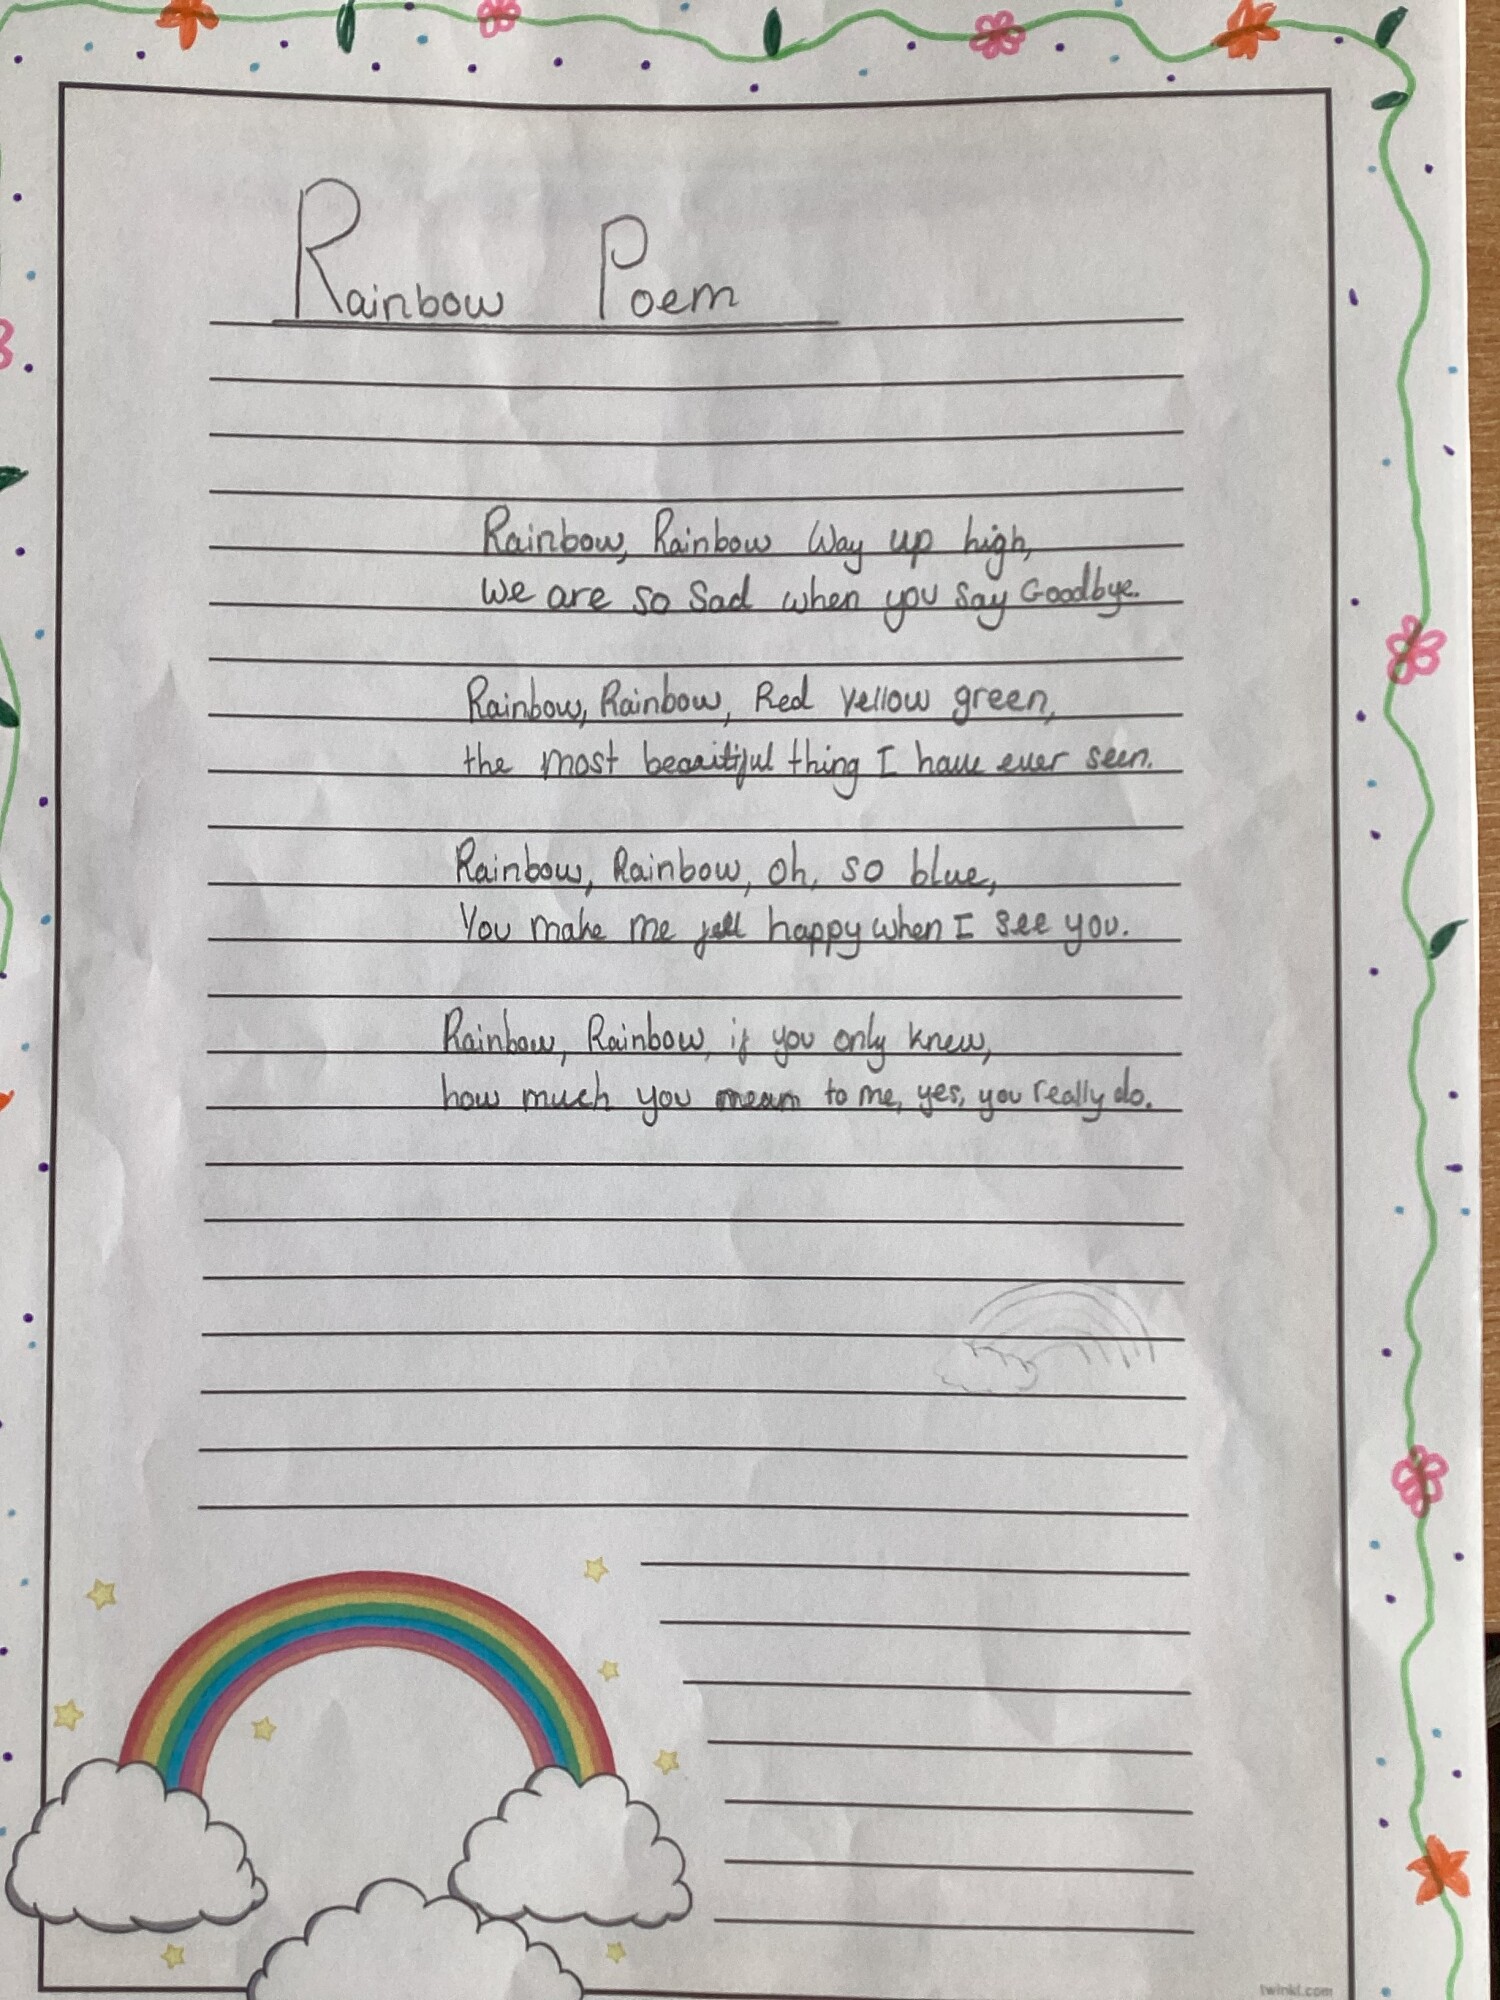 Rainbow Poem
Rainbow, Rainbow Way up high,
We are so Sad when you say Goodbye.
Rainbow, Rainbow, Red yellow green,
the most beautiful thing I have ever seen.
Rainbow, Rainbow, oh, so blue,
You make me feel happy when I see you.
Rainbow, Rainbow, if you only knew,
how much you mean to me, yes, you really do.
twinkl.com